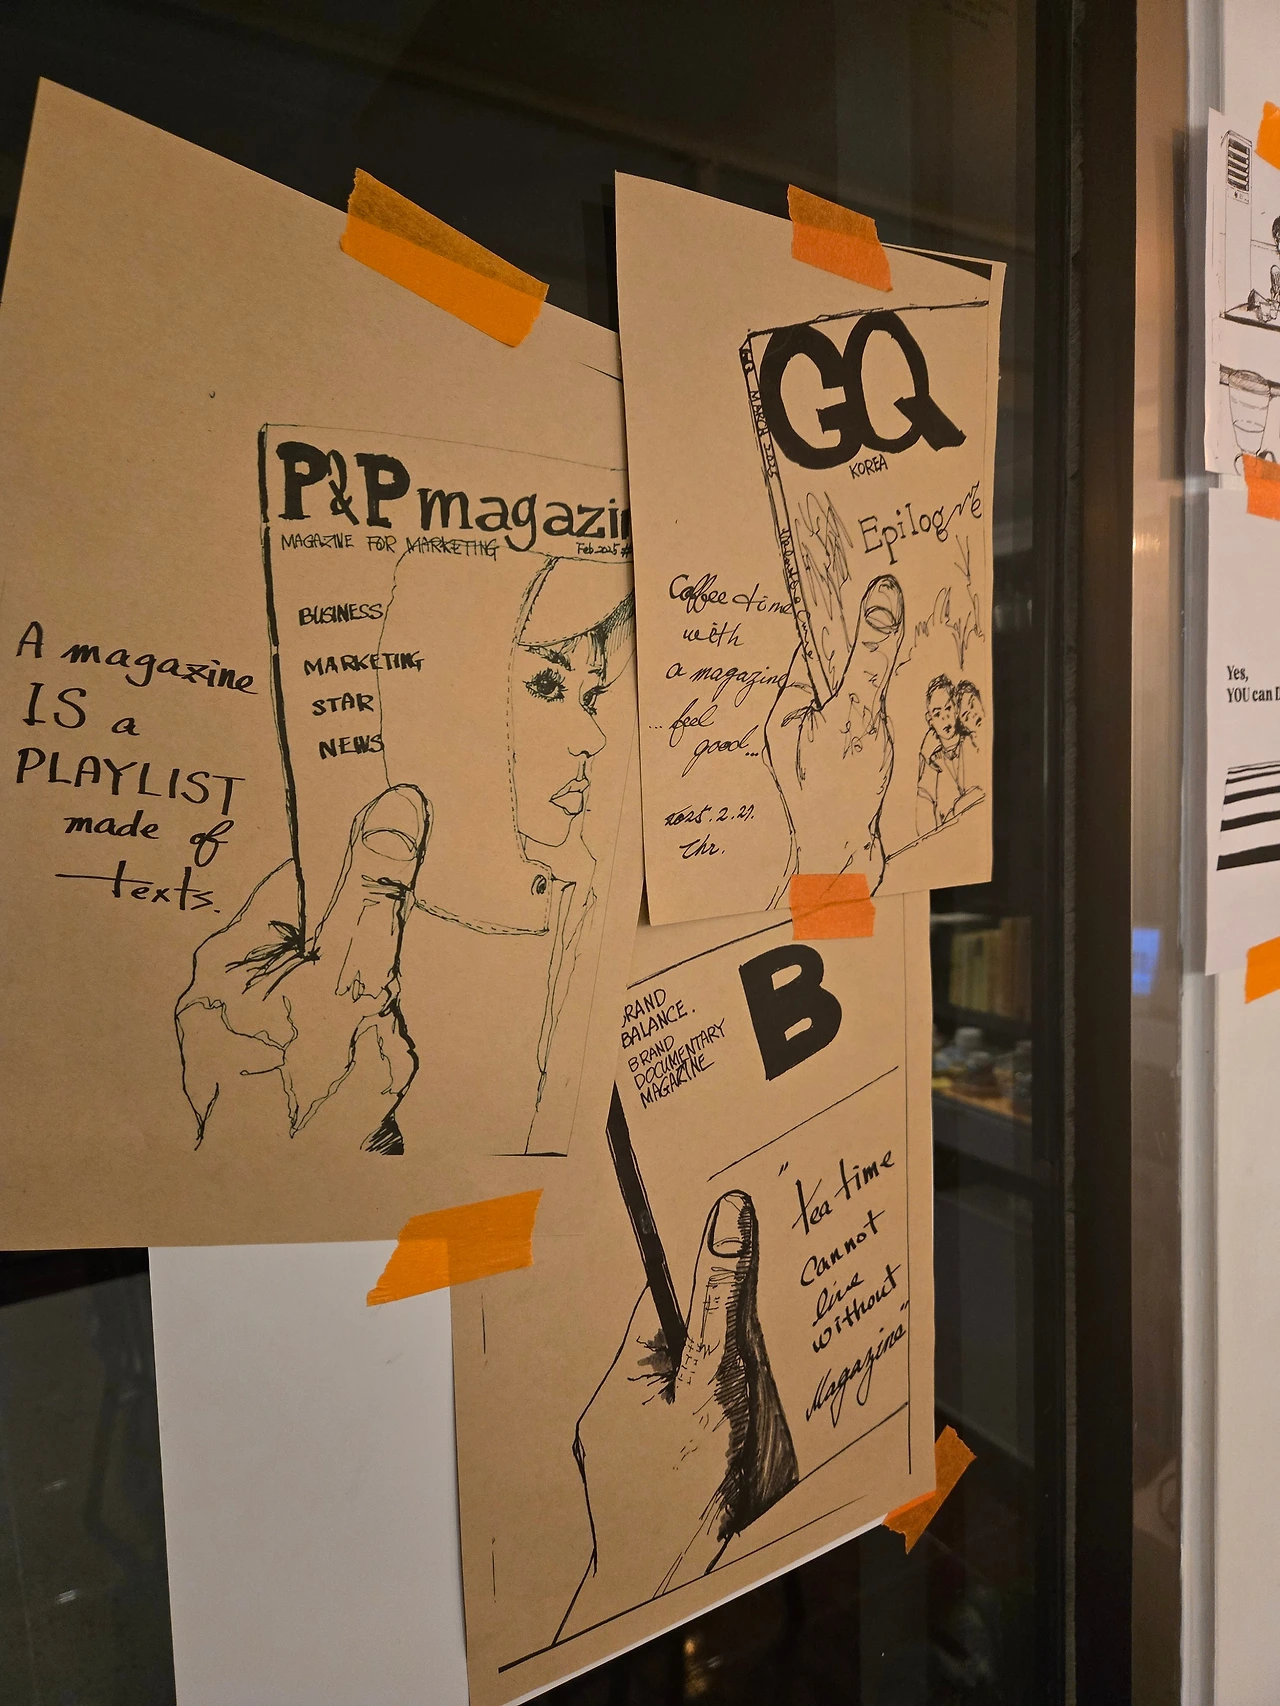 P&P magazin
MAGAZINE FOR MARKETING
Feb.2025
BUSINESS
MARKETING
STAR
NEWS
A magazine
IS a
PLAYLIST
made of
texts.
GQ
KOREA
GQ MARCH 2025
Epilogue
Coffee time
with
a magazine
...feel
good...
2025.2.27.
Thr.
B
BRAND
BALANCE.
BRAND
DOCUMENTARY
MAGAZINE
"tea time
cannot
live
without
Magazine"
Yes,
YOU can D